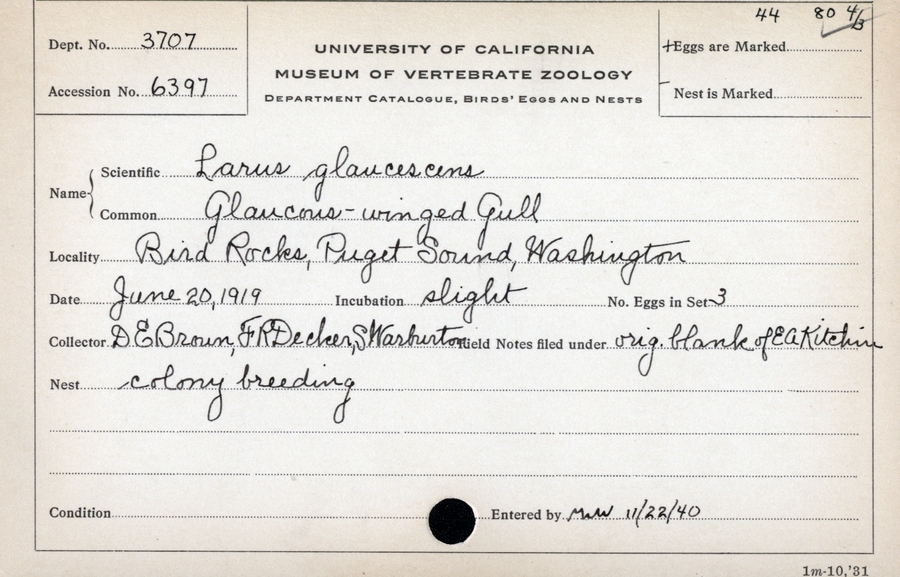 44 80 4/3
Dept. No. 3707
UNIVERSITY OF CALIFORNIA
MUSEUM OF VERTEBRATE ZOOLOGY
DEPARTMENT CATALOGUE, BIRDS' EGGS AND NESTS
+Eggs are Marked
Accession No. 6397
Nest is Marked
Name
Scientific Larus glaucescens
Common Glaucous-winged Gull
Locality Bird Rocks, Puget Sound, Washington
Date June 20, 1919 Incubation slight No. Eggs in Set 3
Collector D E Brown, F R Decker, S Warburton Field Notes filed under orig. blank of E A Kitchin
Nest colony breeding
Condition
Entered by MWW 11/22/40
1m-10,'31